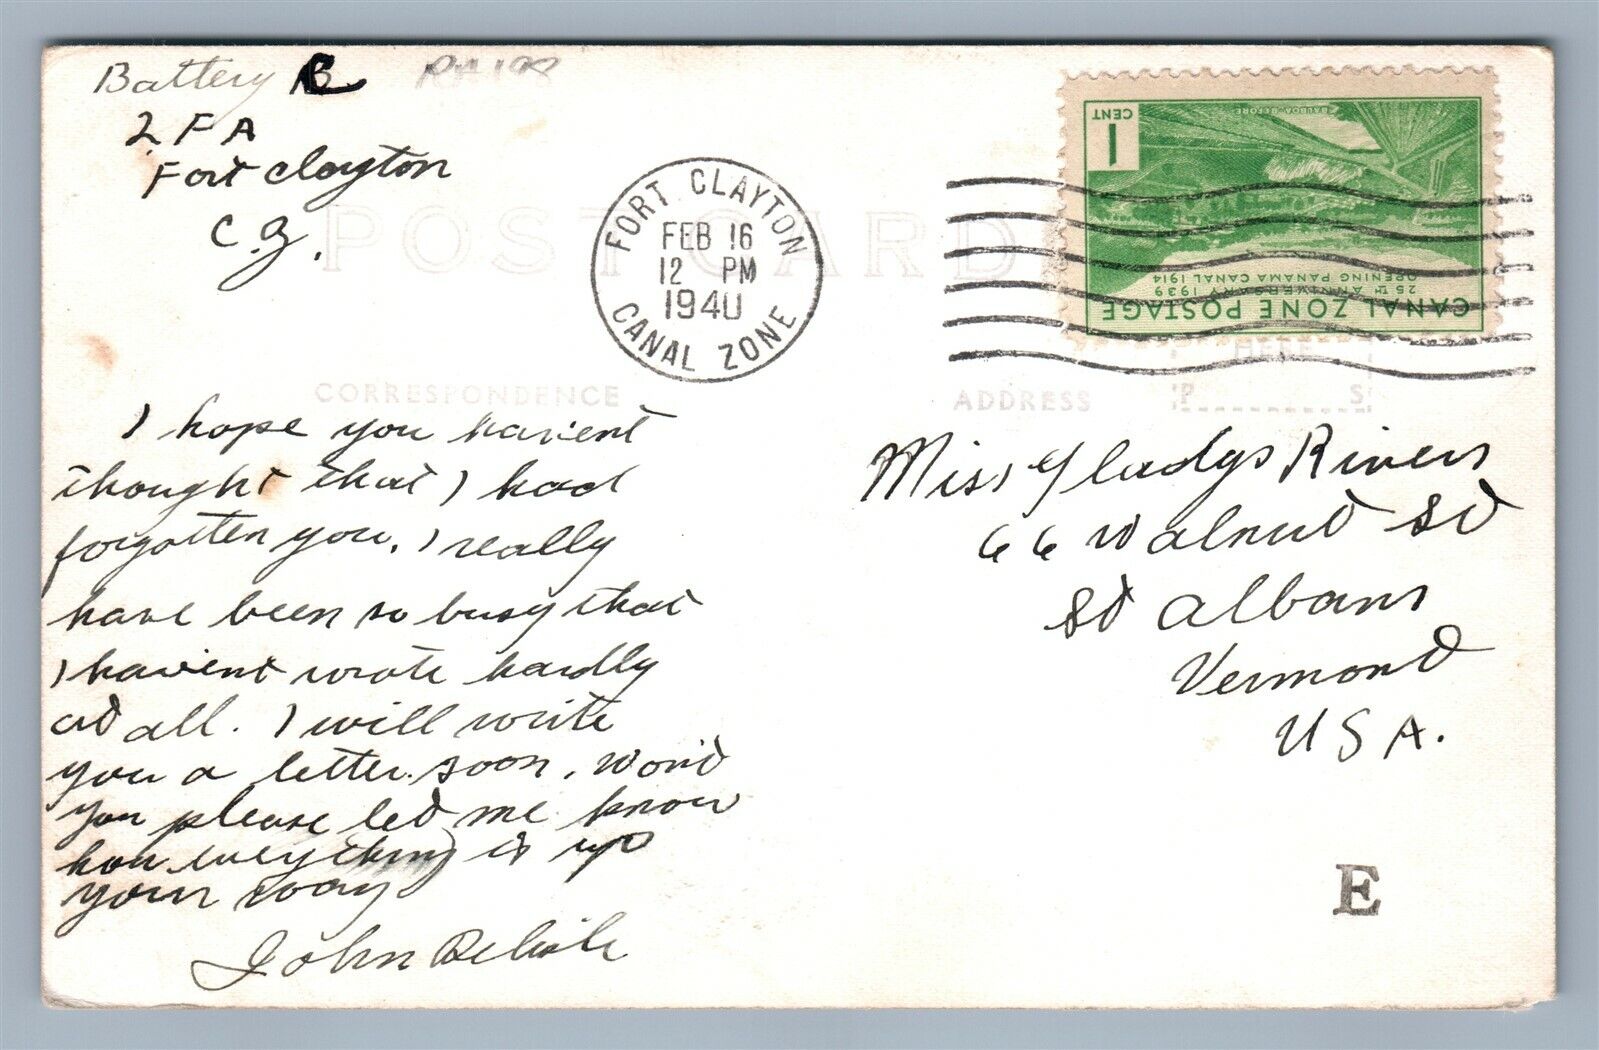 Battery C
2 F A
Fort Clayton
C. Z.
POST CARD
FORT CLAYTON
FEB 16
12 PM
1940
CANAL ZONE
1
CENT
BALBOA-BEFORE
CANAL ZONE POSTAGE
25TH ANNIVERSARY 1939
OPENING PANAMA CANAL 1914
HERE
P S
CORRESPONDENCE
ADDRESS
I hope you haven't
thought that I had
forgotten you. I really
have been so busy that
I haven't wrote hardly
at all. I will write
you a letter soon. Won't
you please let me know
how everything is up
your way
John
Miss Gladys Rivers
66 Walnut St
St Albans
Vermont
U S A.
E